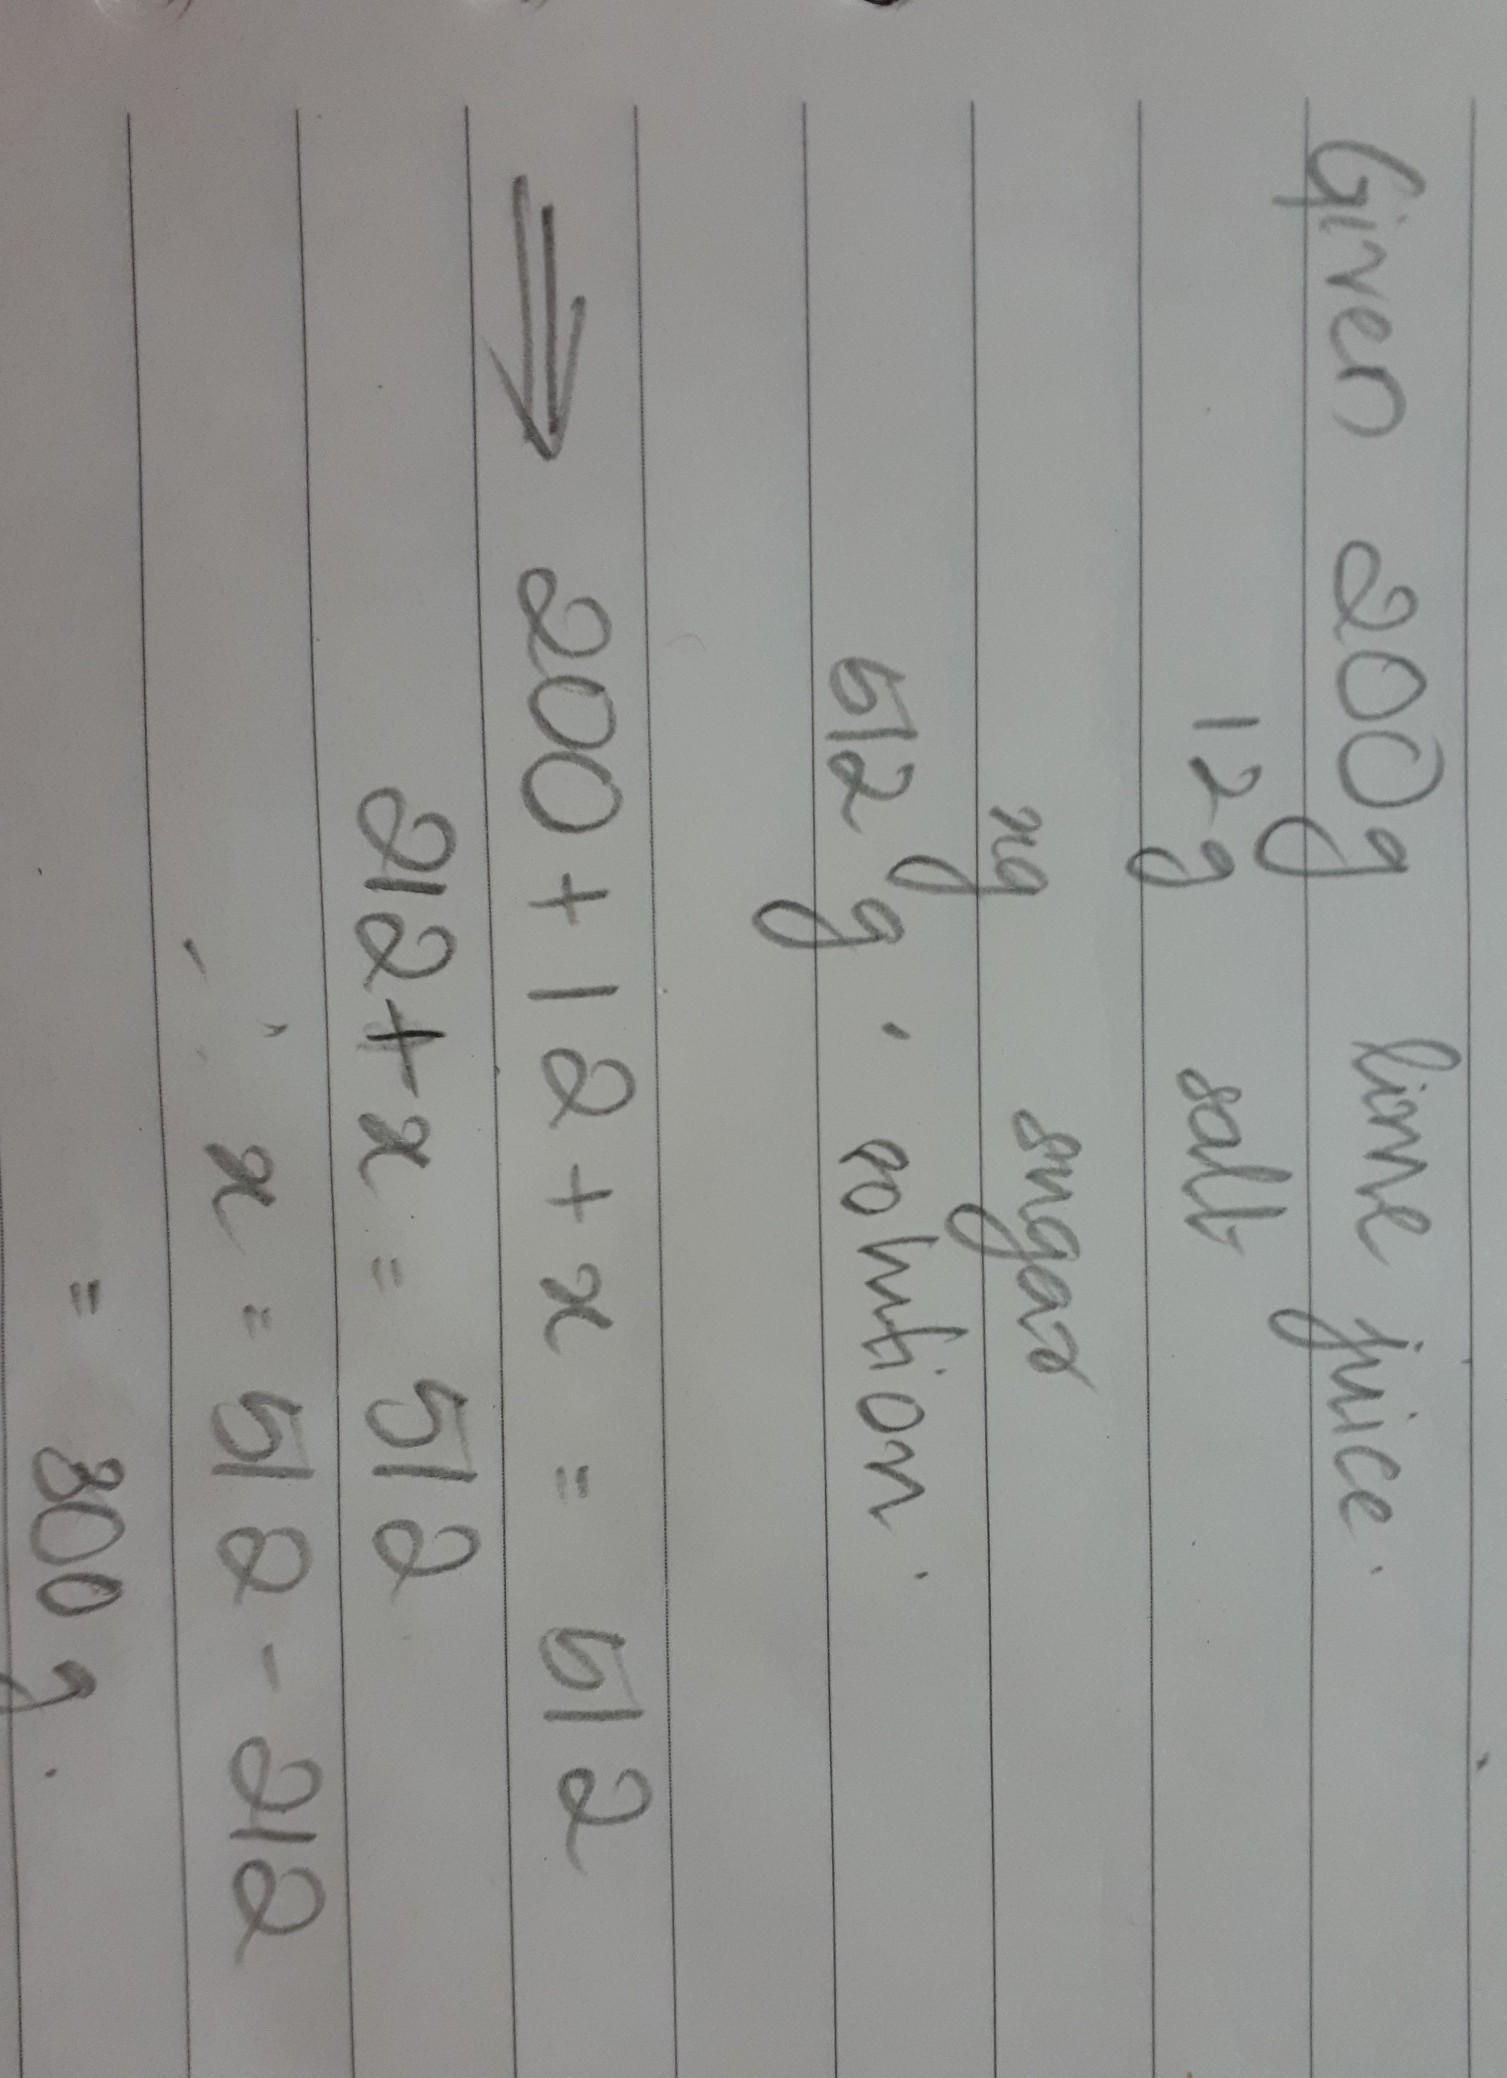 Given 200g lime juice.
12g salt
xg sugar
512g. solution.
⟹ 200 + 12 + x = 512
212 + x = 512
∴ x = 512 - 212
= 300g.